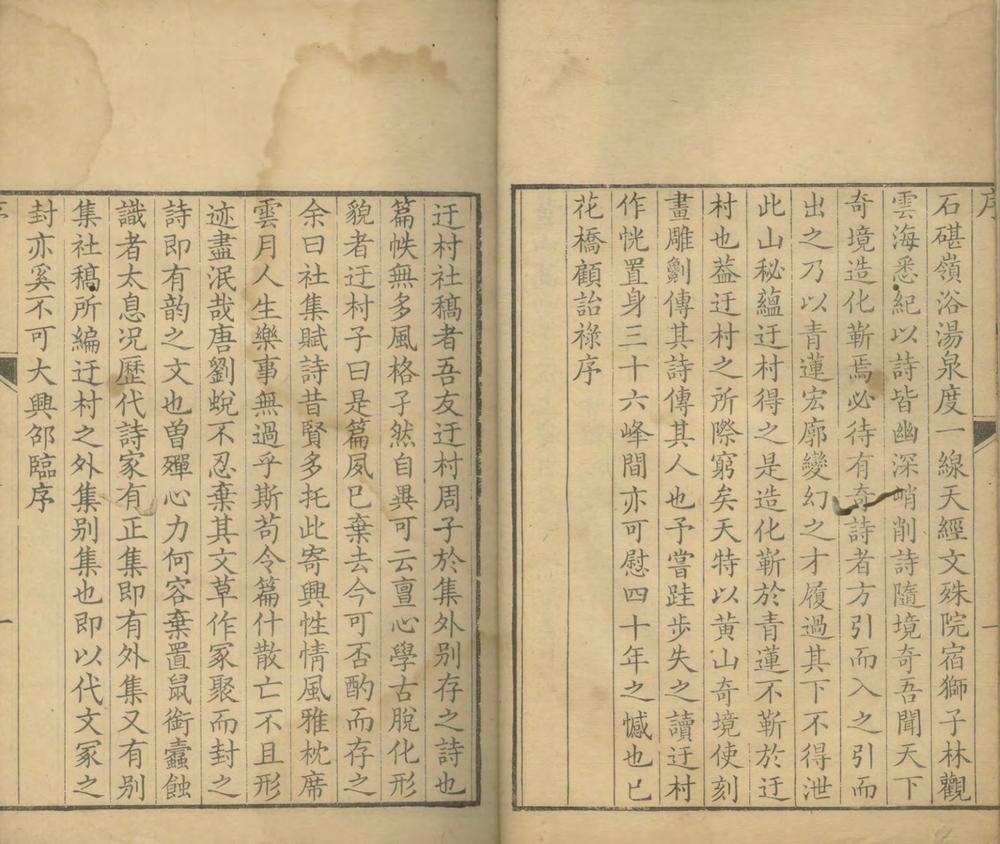 序
石碪嶺浴湯泉度一線天經文殊院宿獅子林觀
雲海悉紀以詩皆幽深峭削詩隨境奇吾聞天下
奇境造化靳焉必待有奇詩者方引而入之引而
出之乃以青蓮宏廓變幻之才履過其下不得泄
此山秘蘊迂村得之是造化靳於青蓮不靳於迂
村也葢迂村之所際窮矣天特以黃山奇境使刻
畫雕劖傳其詩傳其人也予嘗跬步失之讀迂村
作恍置身三十六峰間亦可慰四十年之憾也已
花橋顧詒祿序
一
迂村社稿者吾友迂村周子於集外别存之詩也
篇帙無多風格孑然自異可云亶心學古脫化形
貌者迂村子曰是篇夙已棄去今可否酌而存之
余曰社集賦詩昔賢多托此寄興性情風雅枕席
雲月人生樂事無過乎斯苟令篇什散亡不且形
迹盡泯哉唐劉蛻不忍棄其文草作冢聚而封之
詩即有韵之文也曾殫心力何容棄置鼠銜蠹蝕
識者太息况歷代詩家有正集即有外集又有别
集社稿所編迂村之外集别集也即以代文冢之
封亦奚不可大興邵臨序
一